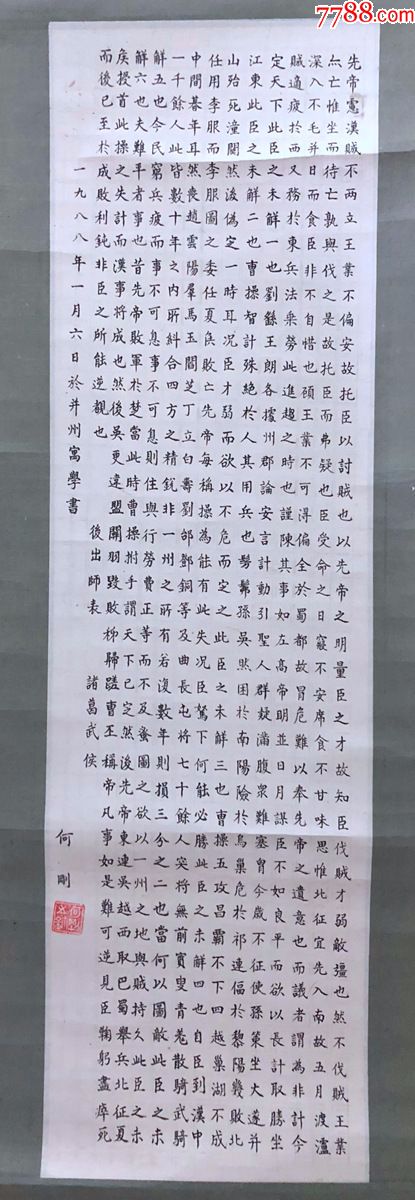 先帝慮漢賊不兩立王業不偏安故托臣以討賊也以先帝之明量臣之才故知臣伐賊才弱敵彊也然不伐賊王業
亦亡惟坐而待亡孰與伐之是故托臣而弗疑也臣受命之日寢不安席食不甘味思惟北征宜先入南故五月渡瀘
深入不毛并日而食臣非不自惜也顧王業不可得偏全於蜀都故冒危難以奉先帝之遺意也而議者謂為非計今
賊適疲於西又務於東兵法乘勞此進趨之時也謹陳其事如左高帝明並日月謀臣不如良平而欲以長計取勝坐
定天下此臣之未解一也劉繇王朗各據州郡論安言計動引聖人群疑滿腹眾難塞胷今歲不征使孫策坐大遂并
江東此臣之未解二也曹操智計殊絕於人其用兵也髣髴孫吳然困於南陽險於烏巢危於祁連偪於黎陽幾敗北
山殆死潼關然後偽定一時耳況臣才弱而欲以不危而定之此臣之未解三也曹操五攻昌霸不下四越巢湖不成
任用李服而李服圖之委任夏侯敗亡先帝每稱操為能有此失況臣駑下何能必勝此臣之未解四也自臣到漢中
中間朞年耳然喪趙雲陽羣馬玉閻芝丁立白壽劉郃鄧銅等及曲長屯將七十餘人突將無前賨叟青羌散騎武騎
一千餘人此皆數十年之內所糾合四方之精銳非一州之所有若復數年則損三分之二也當何以圖敵此臣之未
解五也今民窮兵疲而事不可息事不可息則住與行勞費正等而不及蚤圖之欲以一州之地與賊持久此臣之未
解六也夫難平者事也昔先帝敗軍於楚當此曹操拊手謂天下已定然後先帝東連吳越西取巴蜀舉兵北征夏
侯授首此操之失計而漢事將成也然後吳更違盟關羽毀敗秭歸蹉曹丕稱帝凡事如是難可逆見臣鞠躬盡瘁死
而後已至於成敗利鈍非臣之所能逆覩也 後出師表 諸葛武侯
一九八八年一月六日於并州寓學書 何剛
7788.com